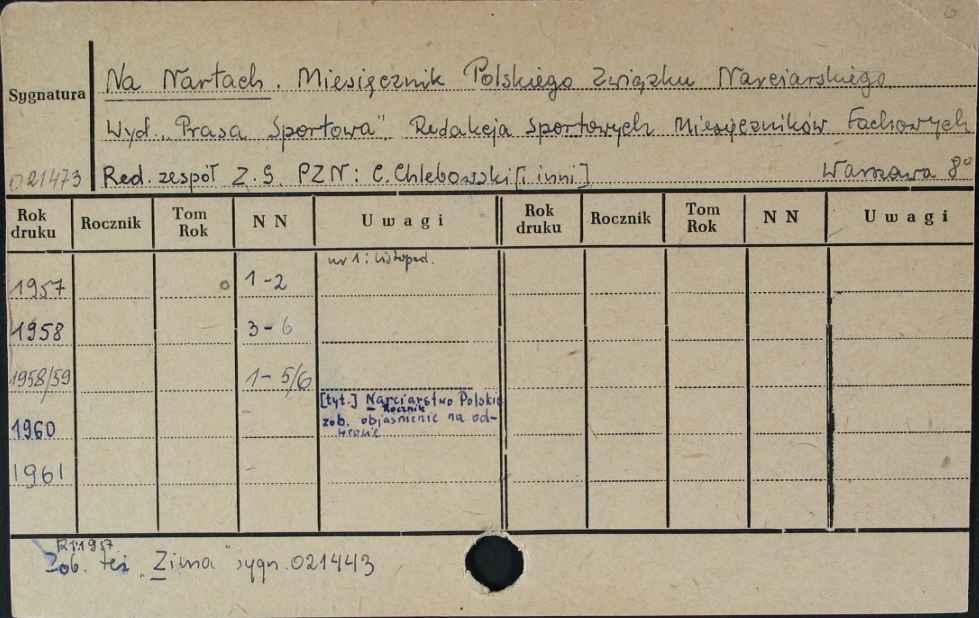 6
Na Nartach. Miesięcznik Polskiego Związku Narciarskiego
Sygnatura
Wyd. „Prasa Sportowa”. Redakcja Sportowych Miesięczników Fachowych
021473 Red. zespół Z.G. PZN: C. Chlebowski [i inni] Warszawa 8°
Rok druku Rocznik Tom Rok NN Uwagi Rok druku Rocznik Tom Rok NN Uwagi
nr 1: listopad.
1957 1-2
1958 3-6
1958/59 1-5/6
[tyt.] Narciarstwo Polskie
- Rocznik
1960 zob. objaśnienie na od-
wrocie
1961 -
R. 1957
Zob. też „Zima” sygn. 021443